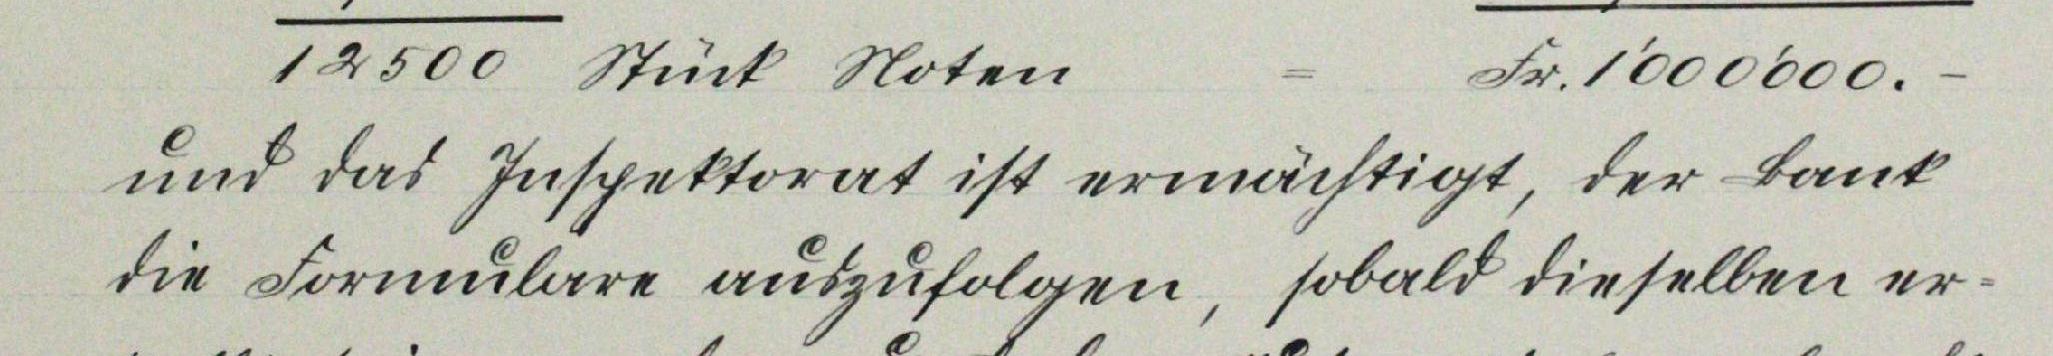 12500 Stück Noten = Fr. 1'000'000.-
und das Inspektorat ist ermächtigt, der Bank
die Formulare auszufolgen, sobald dieselben er-